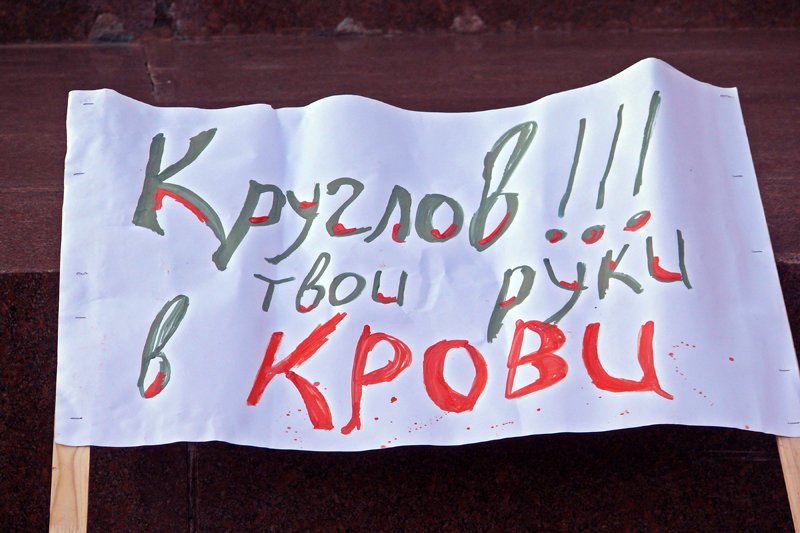 Круглов!!!
твои руки
в крови